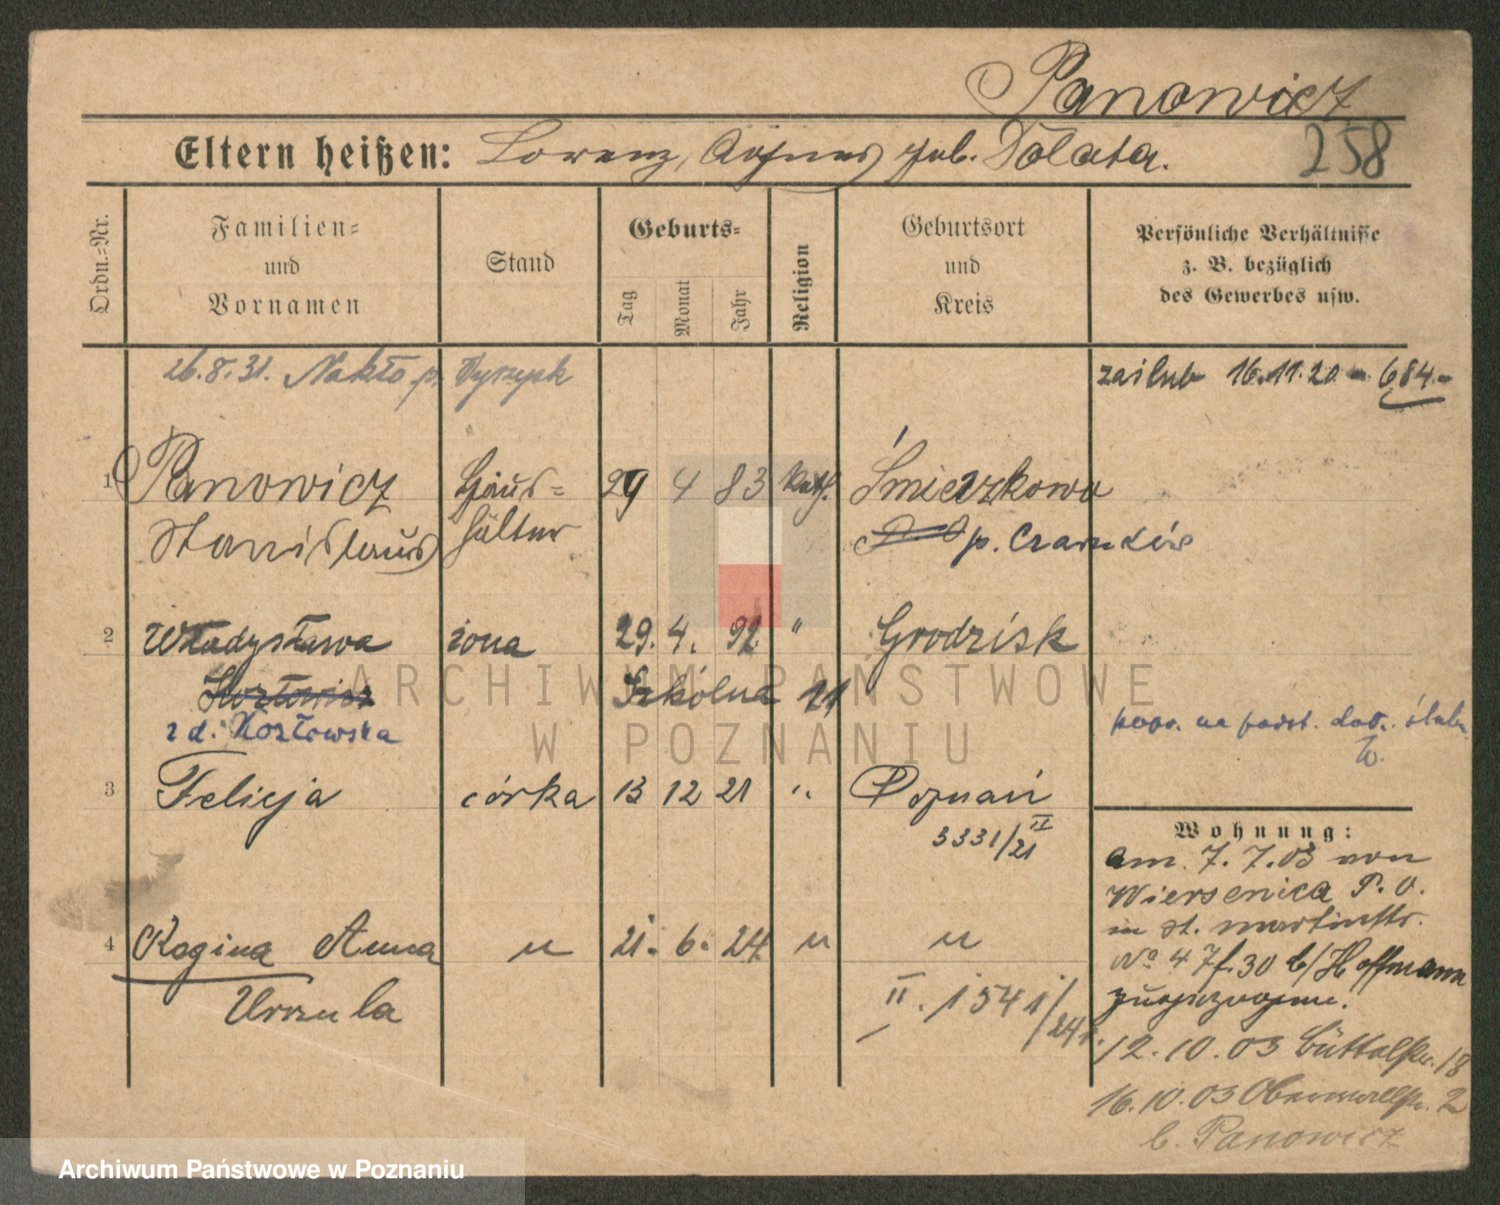 Panowicz
258
Eltern heißen: Lorenz, Agnes geb. Tolata.
Ordn.-Nr.
Familien- und Vornamen
Stand
Geburts-
Tag
Monat
Jahr
Religion
Geburtsort und Kreis
Persönliche Verhältnisse
z. B. bezüglich
des Gewerbes usw.
26.8.31. Nakło p. Wyrzysk
zaślub 16.11.20 - 684.-
1 Panowicz Haus- 29 4 83 kath. Śmieszkowo
Stanislaus hälter p. Czarnków
2 Władysława żona 29. 4. 92. " Grodzisk
Szkólna 21
z d. Kozłowska
popr. na podst. dow. ślubu
3 Felicja córka 13 12 21 " Poznań
3331/21 II
Wohnung:
am 7. 7. 03 von
Wiersenica P. O.
in St. Martinstr.
4 Regina Anna " 21. 6. 24 " "
No 47 f. 30 b/Hoffmann
Urszula
II. 1541/24
zugezogen.
12.10.03 Büttelstr. 18
16.10.03 Oberwallstr. 2
b. Panowicz
ARCHIWUM PAŃSTWOWE
W POZNANIU
Archiwum Państwowe w Poznaniu